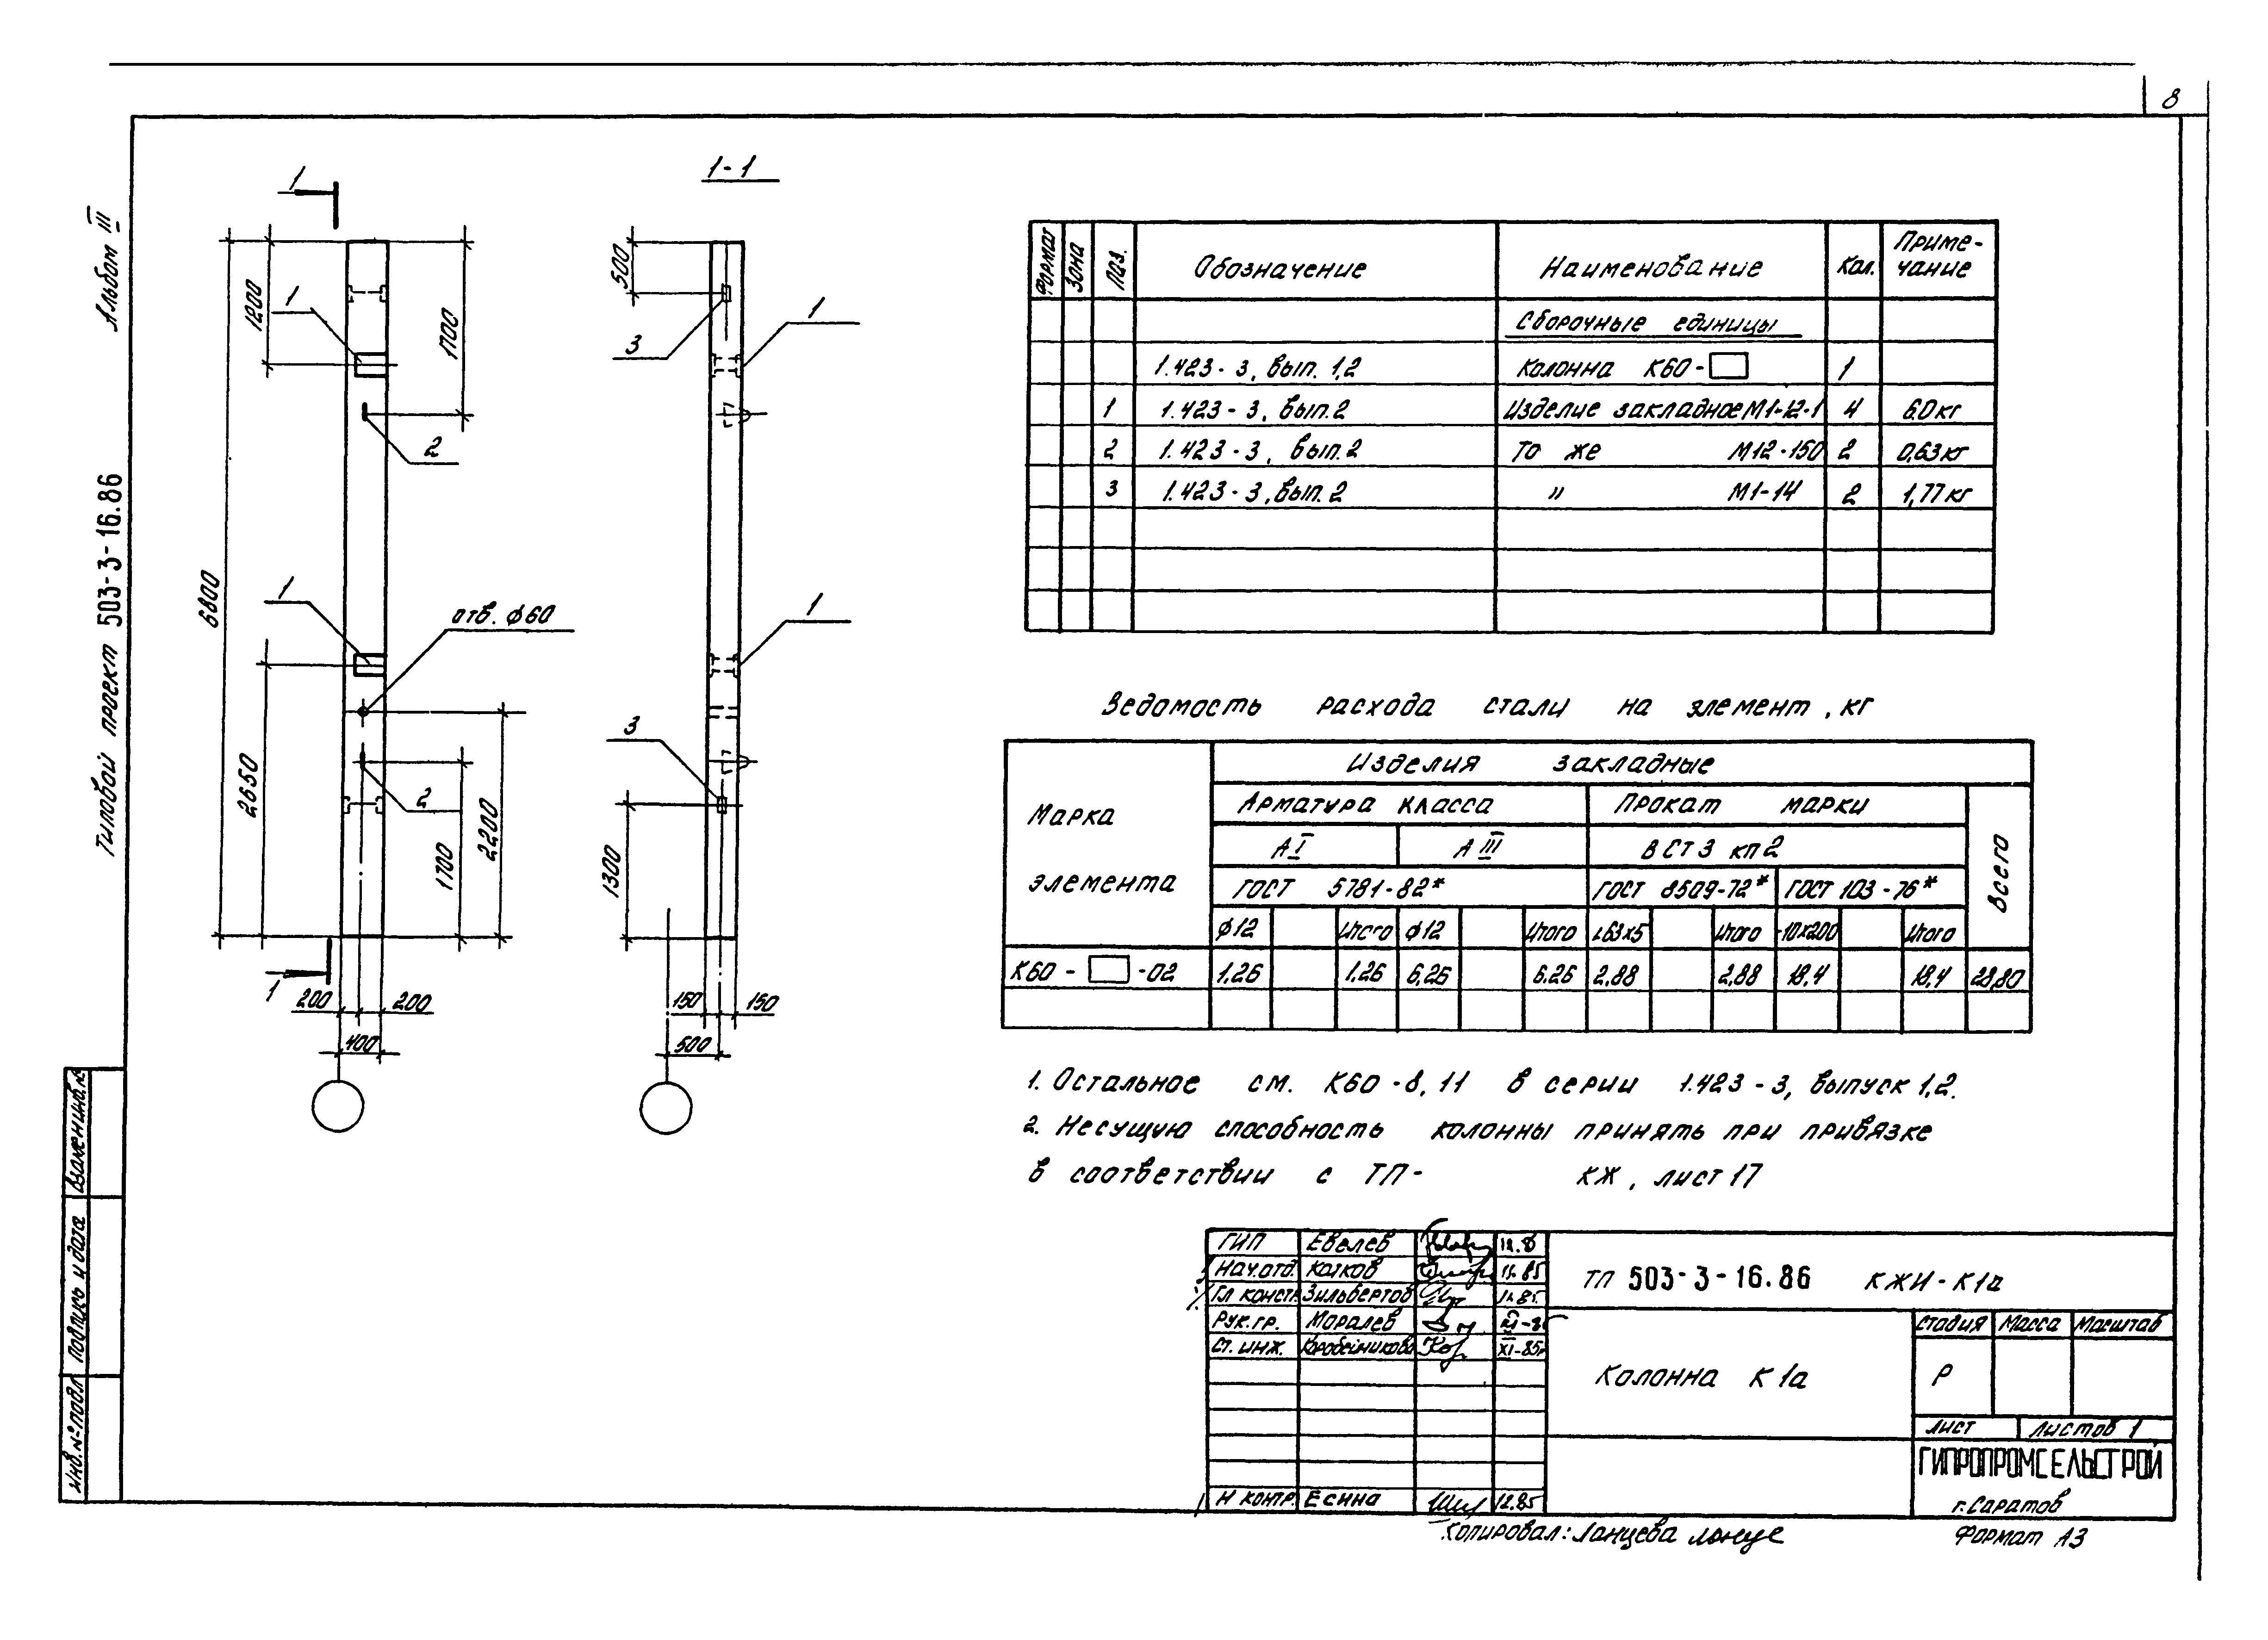 8
Альбом III
Типовой проект 503-3-16.86
Взамен инв.№
Подпись и дата
Инв.№подл
1
1-1
1200
1
1700
2
6800
1
отв. ϕ60
2650
2
1700
2200
1
200 200
400
500
3
1
1
3
1300
150 150
500
Формат Зона Поз. Обозначение Наименование Кол. Приме-
чание
Сборочные единицы
1.423-3, вып. 1,2 Колонна К60-□ 1
1 1.423-3, вып.2 Изделие закладное М1-12-1 4 6.0 кг
2 1.423-3, вып.2 То же М12-150 2 0,63 кг
3 1.423-3, вып.2 " М1-14 2 1,77 кг
Ведомость расхода стали на элемент, кг
Марка элемента
Изделия закладные
Арматура класса Прокат марки Всего
А I А III ВСт3 кп2
ГОСТ 5781-82* ГОСТ 8509-72* ГОСТ 103-76*
ϕ12 Итого ϕ12 Итого L63х5 Итого -10х200 Итого
К60-□-02 1.26 1.26 6,26 6.26 2,88 2,88 18,4 18,4 28,80
1. Остальное см. К60-8, 11 в серии 1.423-3, выпуск 1,2.
2. Несущую способность колонны принять при привязке
в соответствии с ТП- КЖ, лист 17
ГИП Евелев
Нач.отд. 11.85
Гл констр. Зильбертов
Рук.гр. Моралев
Ст. инж. Коробейникова XI-85
Н контр. Есина 12.85
ТП 503-3-16.86 КЖИ-К1а
Колонна К1а
Стадия Масса Масштаб
Р
Лист Листов 1
ГИПРОПРОМСЕЛЬСТРОЙ
г.Саратов
Копировал: Ланцева
Формат А3